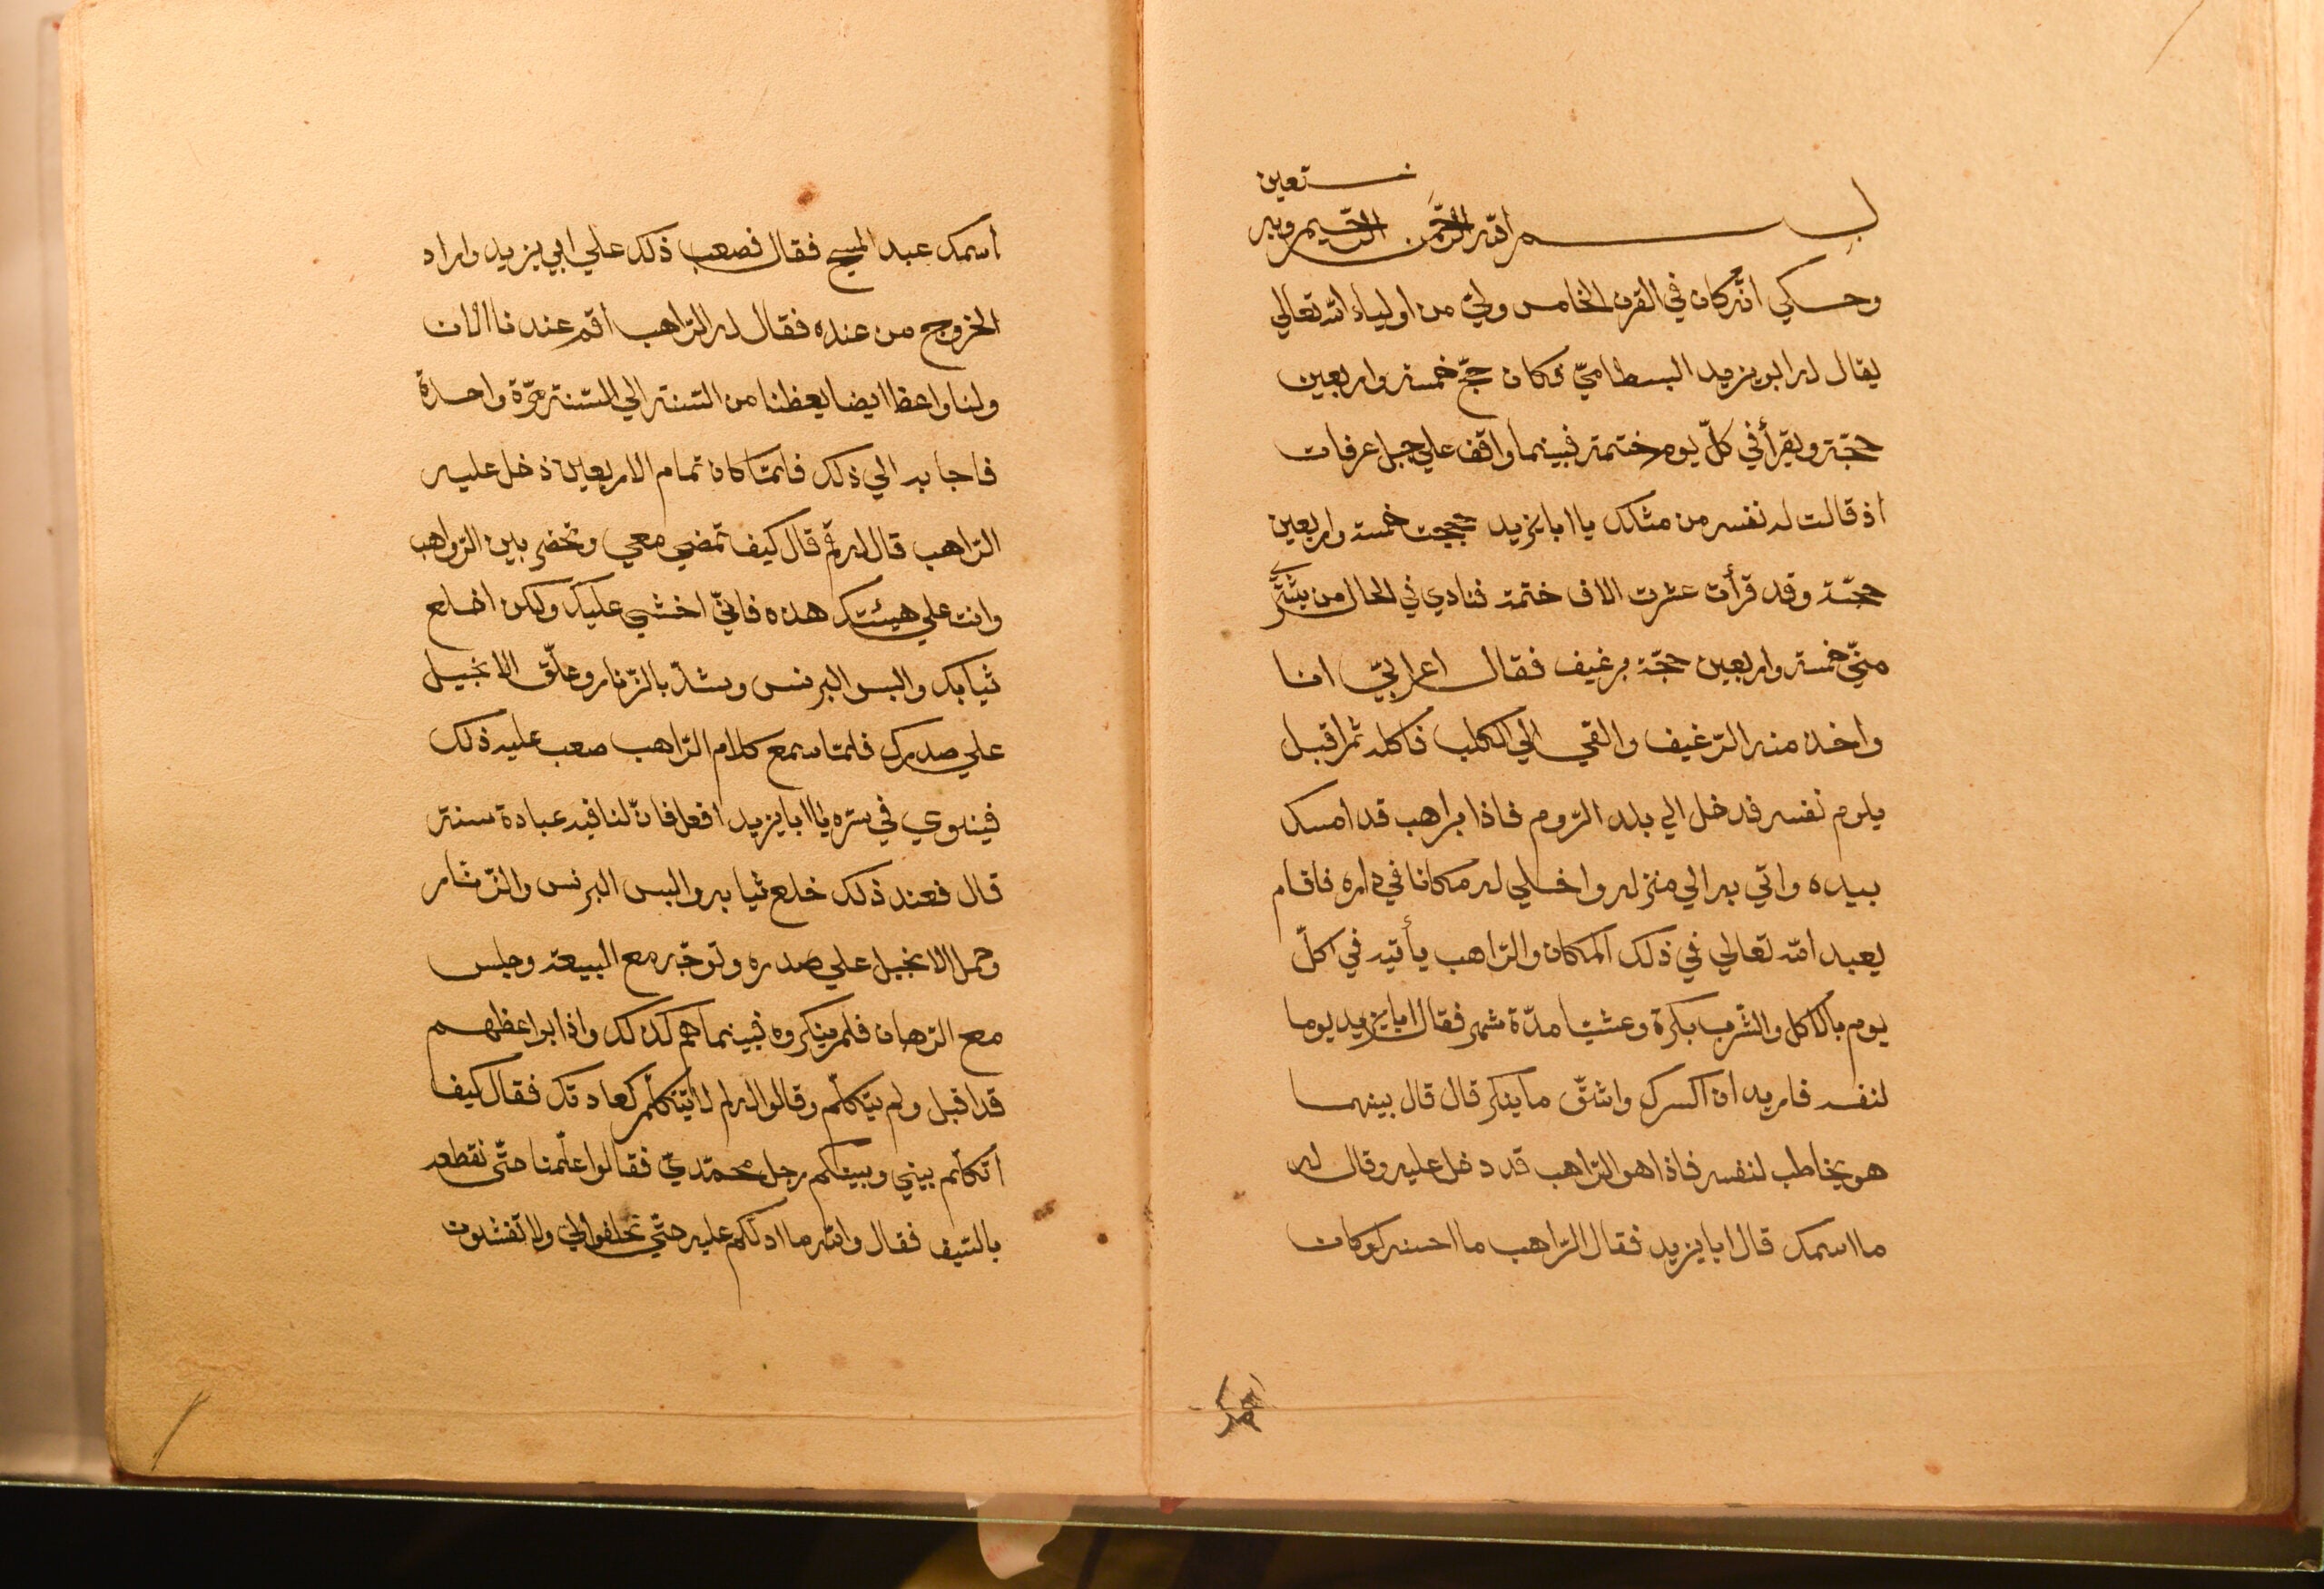 نستعين
بسم الله الرحمن الرحيم وبه
وحكي انّه كان في القرن الخامس وليّ من اولياء الله تعالي
يقال له ابو يزيد البسطاميّ فكان حجّ خمسة واربعين
حجّة ويقرأ في كلّ يوم ختمة فبينما واقف علي جبل عرفات
اذ قالت له نفسه من مثلك يا ابا يزيد حججت خمسة واربعين
حجّة وقد قرأت عشرت الاف ختمة فنادي في الحال من يشتر
منّي خمسة واربعين حجّة برغيف فقال اعرابيّ انا
واخذ منه الرّغيف والقي الي الكلب فاكله ثم اقبل
يلوم نفسه فدخل الي بلد الرّوم فاذا براهب قد امسك
بيده واتي به الي منزله واخلي له مكانا في داره فاقام
يعبد الله تعالي في ذلك المكان والرّاهب يأتيه في كلّ
يوم بالاكل والشّرب بكرة وعشيّا مدّة شهر فقال ابا يزيد يوما
لنفسه فاريد ان اكسرك واشقّ ما ينكر قال قال بينهما
هو يخاطب لنفسه فاذا هو الرّاهب قد دخل عليه وقال له
ما اسمك قال ابا يزيد فقال الرّاهب ما احسنه لو كان
اسمك عبد المسيح فقال فصعب ذلك علي ابي يزيد واراد
الخروج من عنده فقال له الرّاهب اقم عندنا الان
ولنا واعظ ايضا يعظنا من السّنة الي السّنة مرّة واحدة
فاجابه الي ذلك فلمّا كان تمام الاربعين دخل عليه
الرّاهب قال له قم قال كيف تمضي معي وتحضر بين الرّواهب
وانت علي هيئتك هذه فانّي اخشي عليك ولكن اخلع
ثيابك والبس البرنس وشدّ بالزّنار وعلّق الانجيل
علي صدرك فلمّا سمع كلام الرّاهب صعب عليه ذلك
فينوي في سرّه يا ابا يزيد افعل فانّ لنا فيه عبادة سنة
قال فعند ذلك خلع ثيابه والبس البرنس والزّنار
وحمل الانجيل علي صدره وتوجّه مع البيعة وجلس
مع الرّهبان فلم ينكروه فبينما هم كذلك واذا بواعظهم
قد اقبل ولم يتكلّم وقالوا له لم لا تتكلّم كعادتك فقال كيف
أتكلّم بيني وبينكم رجل محمّديّ فقالوا علّمنا حتّي نقطعه
بالسّيف فقال والله ما ادلّكم عليه حتّي تحلفوا لي ولا تفشلون